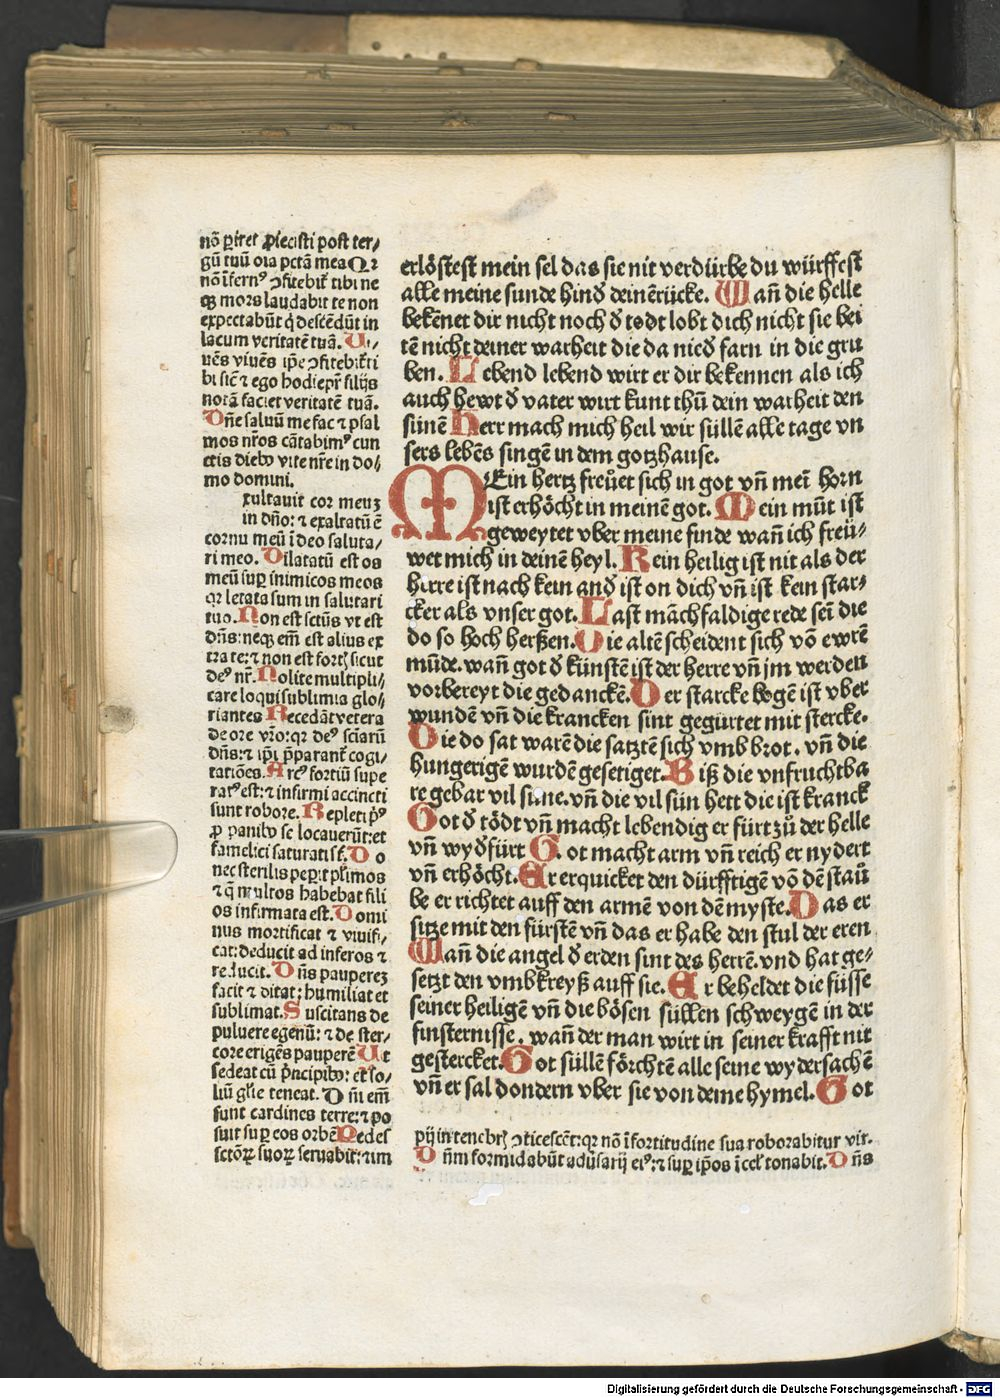 nō ꝑiret ꝓiecisti post ter⸗
gū tuū oīa pctā mea Qꝛ
nō īfernꝰ ꝯfitebit᷑ tibi ne
qꝫ mors laudabit te non
expectabūt q̇ descēdūt in
lacum veritatē tuā. Ui⸗
uēs viuēs ip̄e ꝯfitebit᷑ ti
bi sic̄ ⁊ ego hodie pr̄ filijs
notā faciet veritatē tuā.
Dn̄e saluū me fac ⁊ psal
mos nr̄os cātabimꝰ cun
ctis diebꝰ vite nr̄e in do⸗
mo domini.
Exultauit cor meuꝫ
in dn̄o: ⁊ exaltatū ē
cornu meū ī deo saluta⸗
ri meo. Dilatatū est os
meū suꝑ inimicos meos
qꝛ letata sum in salutari
tuo. Non est sctūs vt est
dn̄s: neqꝫ em̄ est alius ex
tra te: ⁊ non est fortꝭ sicut
deꝰ nr̄. Nolite multipli⸗
care loqui sublimia glo⸗
riantes Recedāt vetera
de ore vr̄o: qꝛ deꝰ sciarū
dn̄s: ⁊ ip̄i p̄parant᷑ cogi⸗
tatiōes. Arcꝰ fortiū supe
ratꝰ est: ⁊ infirmi accincti
sunt robore. Repleti pꝰ
ꝓ panibꝰ se locauerūt: et
famelici saturati st̄. Do
nec sterilis peꝑit pl̄imos
⁊ q̄ multos habebat fili
os infirmata est. Domi
nus mortificat ⁊ viuifi⸗
cat: deducit ad inferos ⁊
reducit. Dn̄s paupereꝫ
facit ⁊ ditat: humiliat et
sublimat. Suscitans de
puluere egenū: ⁊ de ster⸗
core erigēs pauperē Ut
sedeat cū p̄ncipibꝰ: et so⸗
liū gl̄ie teneat. Dn̄i em̄
sunt cardines terre: ⁊ po
suit suꝑ eos orbē Pedes
sctōꝝ suoꝝ seruabit: ⁊ im
erlöstest mein sel das sie nit verdürbe du würffest
alle meine sunde hind̕ deinē rücke. Wañ die helle
bekēnet dir nicht noch d̕ todt lobt dich nicht sie bei
tē nicht deiner warheit die da nied̕ farn in die gru
ben. Lebend lebend wirt er dir bekennen als ich
auch hewt d̕ vater wirt kunt thū dein warheit den
sünē Herr mach mich heil wir süllē alle tage vn
sers lebēs singē in dem gotzhause.
MEin hertz freuͤet sich in got vñ mei᷑ horn
ist erhöcht in meinē got. Mein müt ist
geweytet vber meine finde wañ ich freü⸗
wet mich in deinē heyl. Kein heilig ist nit als der
herre ist nach kein and̕ ist on dich vñ ist kein star⸗
cker als vnser got. Last māchfaldige rede sei᷑ die
do so hoch herßen. Die altē scheident sich vō ewrē
mūde. wañ got d̕ künstē ist der herre vñ jm werden
vorbereyt die gedanckē. Der starcke bogē ist vber
wundē vñ die krancken sint gegürtet mit stercke.
Die do sat warē die satztē sich vmb brot. vñ die
hungerigē wurdē gesetiget. Biß die vnfruchtba
re gebar vil süne. vñ die vil sün hett die ist kranck
Got d̕ tödt vñ macht lebendig er fürt zů der helle
vñ wyd̕fürt Got macht arm vñ reich er nydert
vñ erhöcht. Er erquicket den dürfftigē vō dē stau̇
be er richtet auff den armē von dē myste. Das er
sitze mit den fürstē vñ das er habe den stul der eren
Wañ die angel d̕ erden sint des herrē. vnd hat ge⸗
setzt den vmbkreyß auff sie. Er beheldet die füsse
seiner heiligē vñ die bösen süllen schweygē in der
finsternisse. wañ der man wirt in seiner krafft nit
gestercket. Got süllē förchtē alle seine wydersachē
vñ er sal dondern vber sie von deme hymel. Got
pij in tenebrꝭ ꝯticescēt: qꝛ nō ī fortitudine sua roborabitur vir.
Dn̄m formidabūt adu̇sarij eiꝰ: ⁊ suꝑ ip̄os ī cel̕ tonabit. Dn̄s
Digitalisierung gefördert durch die Deutsche Forschungsgemeinschaft - DFG